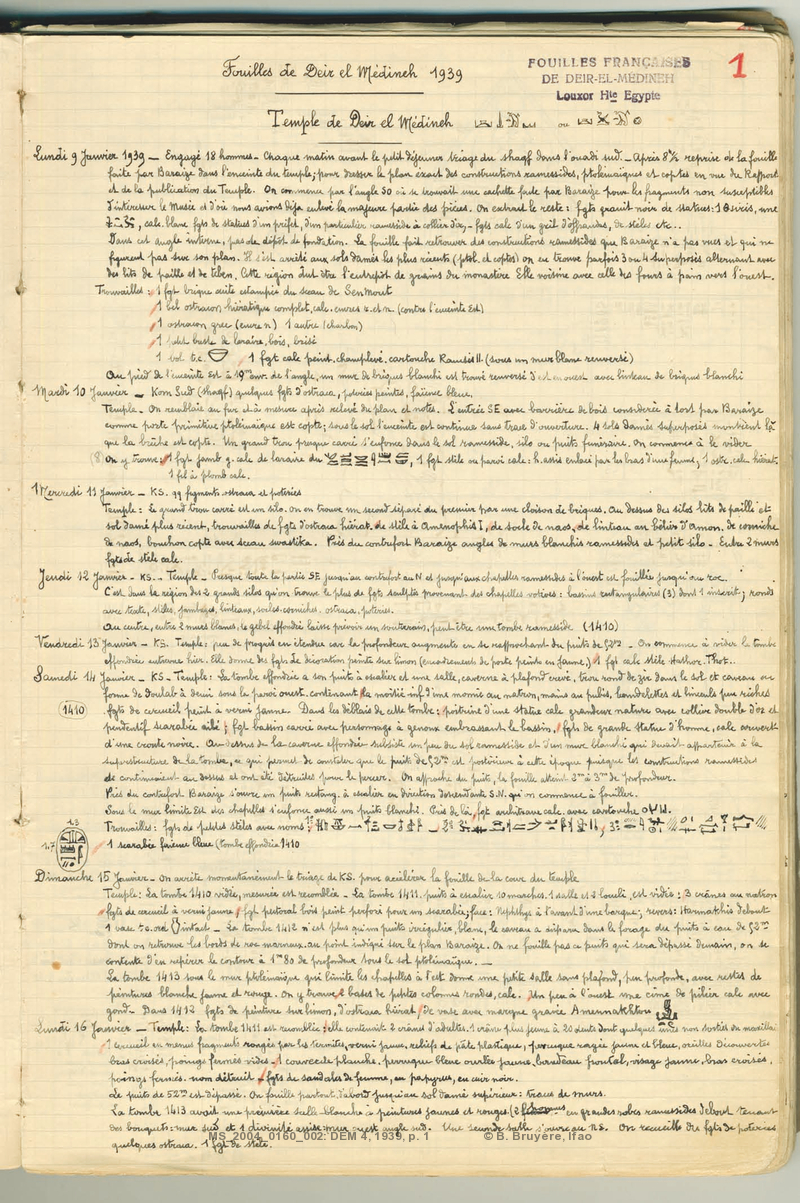 Fouilles de Deir el Médineh 1939
FOUILLES FRANÇAISES
DE DEIR-EL-MÉDINEH
Louxor Hte Egypte
1
Temple de Deir el Médineh ou
Lundi 9 Janvier 1939 _ Engagé 18 hommes - Chaque matin avant le petit déjeuner triage du shagf dans l'ouadi sud. _ Après 8h½ reprise de la fouille
faite par Baraize dans l'enceinte du temple; pour dresser le plan exact des constructions ramessides, ptolemaiques et coptes en vue du Rapport
et de la publication du Temple. On commence par l'angle SO où se trouvait une cachette faite par Baraize pour les fragments non susceptibles
d'intéresser le Musée et d'où nous avions déja enlevé la majeure partie des pièces. On extrait le reste : fgts granit noir de statues: 1 Osiris, une
, calc. blanc fgts de statues d'un préfet, d'un particulier ramesside à collier d'or, _ fgts calc. d'offrandes, de stèles etc..
Dans cet angle interne, pas de dépôt de fondation. La fouille fait retrouver des constructions ramessides que Baraize n'a pas vues et qui ne
figurent pas sur son plan. Il s'est arrêté aux sols damés les plus récents (ptol. et coptes) on en trouve parfois 3 ou 4 superposés alternant avec
des lits de paille et de teben. Cette région doit être l'entrepôt de grains du monastère Elle voisine avec celle des fours à pains vers l'ouest.
Trouvailles : 1 fgt brique cuite estampée du sceau de Senmout
1 bel ostracon hiératique complet, calc. encres r. et n. (contre l'enceinte Est)
1 ostracon grec (encre n) 1 autre (charbon)
1 petit buste de laraire, bois, brisé
1 bol t.c. 1 fgt calc peint. champlevé, cartouche Ramsès II. (sous un mur blanc renversé)
Au pied de l'enceinte est à 19m de l'angle, un mur de briques blanchi est trouvé renversé d'est en ouest avec linteau de briques blanchi
Mardi 10 Janvier _ Kom Sud (shagf) quelques fgts d'ostraca, poteries peintes, faïence bleue.
Temple _ On remblaie au fur et à mesure après relevé du plan et notes. L'entrée SE avec barrière de bois considérée à tort par Baraize
comme porte primitive ptolémaique est copte; sous le sol l'enceinte est continue sans trace d'ouverture. 4 sols damés superposés montrent là
que la brèche est copte. Un grand trou presque carré s'enfonce dans le sol ramesside, silo ou puits funéraire. On commence à le vider
On y trouve: 1 fgt jamb g. calc de laraire du , 1 fgt stèle ou paroi calc: h. assis enlacé par les bras d'une femme, 1 ostr. calc hiérat.
1 fil à plomb calc.
Mercredi 11 Janvier _ KS. 99 fragments ostraca et poteries
Temple: le grand trou carré est un silo. on en trouve un second séparé du premier par une cloison de briques. Au dessus des silos lits de paille et
sol damé plus récent, trouvailles de fgts d'ostraca hiérat. de stèle à Amenophis I, de socle de naos, de linteau au bélier d'Amon. de corniche
de naos, bouchon copte avec sceau swastika. Près du contrefort Baraize angles de murs blanchis ramessides et petit silo _ Entre 2 murs
fgts de stèle calc.
Jeudi 12 Janvier - KS. _ Temple _ Presque toute la partie SE jusqu'au contrefort au N et jusqu'aux chapelles ramessides à l'ouest est fouillée jusqu'au roc.
C'est dans la région des 2 grands silos qu'on trouve le plus de fgts sculptés provenant des chapelles votives : bassins rectangulaires (3) dont 1 inscrit; ronds
avec texte, stèles, jambages, linteaux, socles. corniches. ostraca, poteries.
Au centre, entre 2 murs blancs, le gebel effondré laisse prévoir un souterrain, peut-être une tombe ramesside (1410)
Vendredi 13 Janvier _ KS. Temple: peu de progrès en étendue car la profondeur augmente en se rapprochant du puits de 52m _ On commence à vider la tombe
effondrée entrevue hier. Elle donne des fgts de décoration peinte sur limon (encadrements de porte peints en jaune,) 1 fgt calc stèle Hathor. Thot..
Samedi 14 Janvier _ KS _ Temple: La tombe effondrée a son puits à escalier et une salle, caverne à plafond crevé, trou rond de zir dans le sol et caveau en
forme de doulab à demi sous la paroi ouest. contenant la moitié inf d'une momie au natron, mains au pubis, bandelettes et linceuls peu riches
1410
fgts de cercueil peint à vernis jaune. Dans les déblais de cette tombe; poitrine d'une statue calc grandeur nature avec collier double d'or et
pendentif scarabée ailé; fgt bassin carré avec personnage à genoux embrassant le bassin, fgts de grande statue d'homme, calc. couvert
d'une croute noire. Au dessus de la caverne effondrée subsiste un peu du sol ramesside et d'un mur blanchi qui devait appartenir à la
superstructure de la tombe, ce qui permet de constater que le puits de 52m est postérieur à cette époque puisque les constructions ramessides
se continuaient au dessus et ont été détruites pour le percer. On approche du puits, la fouille atteint 2m à 3m de profondeur.
Près du contrefort Baraize s'ouvre un puits rectang. à escalier en direction descendante S.N. qu'on commence à fouiller.
Sous le mur limite Est des chapelles s'enfonce aussi un puits blanchi. Près de là, fgt architrave calc. avec cartouche
Trouvailles: fgts de petites stèles avec noms
1 scarabée faïence bleue (tombe effondrée 1410
Dimanche 15 Janvier _ On arrête momentanément le triage de KS. pour accélérer la fouille de la cour du temple
Temple: La tombe 1410 vidée, mesurée est recomblée _ La tombe 1411. puits à escalier 10 marches. 1 salle et 2 loculi est vidée ; 3 crânes au natron
fgts de cercueil à vernis jaune, fgt pectoral bois peint perforé pour un scarabée; face: Nephthys à l'avant d'une barque; revers: Harmakhis debout
1 vase t.c. ord intact _ La tombe 1412 n'est plus qu'un puits irrégulier, blanc, le caveau a disparu dans le forage du puits à eau de 52m
dont on retrouve les bords de roc marneux au point indiqué sur le plan Baraize. On ne fouille pas ce puits qui sera dépassé demain, on se
contente d'en repérer le contour à 1m80 de profondeur sous le sol ptolémaïque. _
La tombe 1413 sous le mur ptolémaique qui limite les chapelles à l'est donne une petite salle sans plafond, peu profonde, avec restes de
peintures blanche jaune et rouge. On y trouve 2 bases de petites colonnes rondes, calc. Un peu à l'ouest une cime de pilier calc avec
gond _ Dans 1412 fgts de peinture sur limon, d'ostraca hiérat, de vase avec marque gravée Amennakhtou
Lundi 16 Janvier _ Temple: La tombe 1411 est recomblée ; elle contenait 2 crânes d'adultes. 1 crâne plus jeune à 20 dents dont quelques unes non sorties du maxillaire
1 cercueil en menus fragments rongés par les termites, verni jaune, reliefs de pâte plastique, perruque rayée jaune et bleue, oreilles découvertes
bras croisés, poings fermés vides _ 1 couvercle planche. perruque bleue ourlée jaune, bandeau frontal, visage jaune, bras croisés,
poings fermés. nom détruit _ fgts de sandales de femme, en papyrus, en cuir noir.
Le puits de 52m est dépassé. On fouille partout d'abord jusqu'au sol damé supérieur: traces de murs.
La tombe 1413 avait une première salle blanche à peintures jaunes et rouges (2 en grandes robes ramessides debout tenant
des bouquets: mur sud et 1 divinité assise: mur ouest angle sud. Une seconde salle s'ouvre au NS. On recueille des fgts de poteries
quelques ostraca. 1 fgt de stèle.
MS_2004_0160_002: DEM 4, 1939, p. 1 © B. Bruyère, Ifao